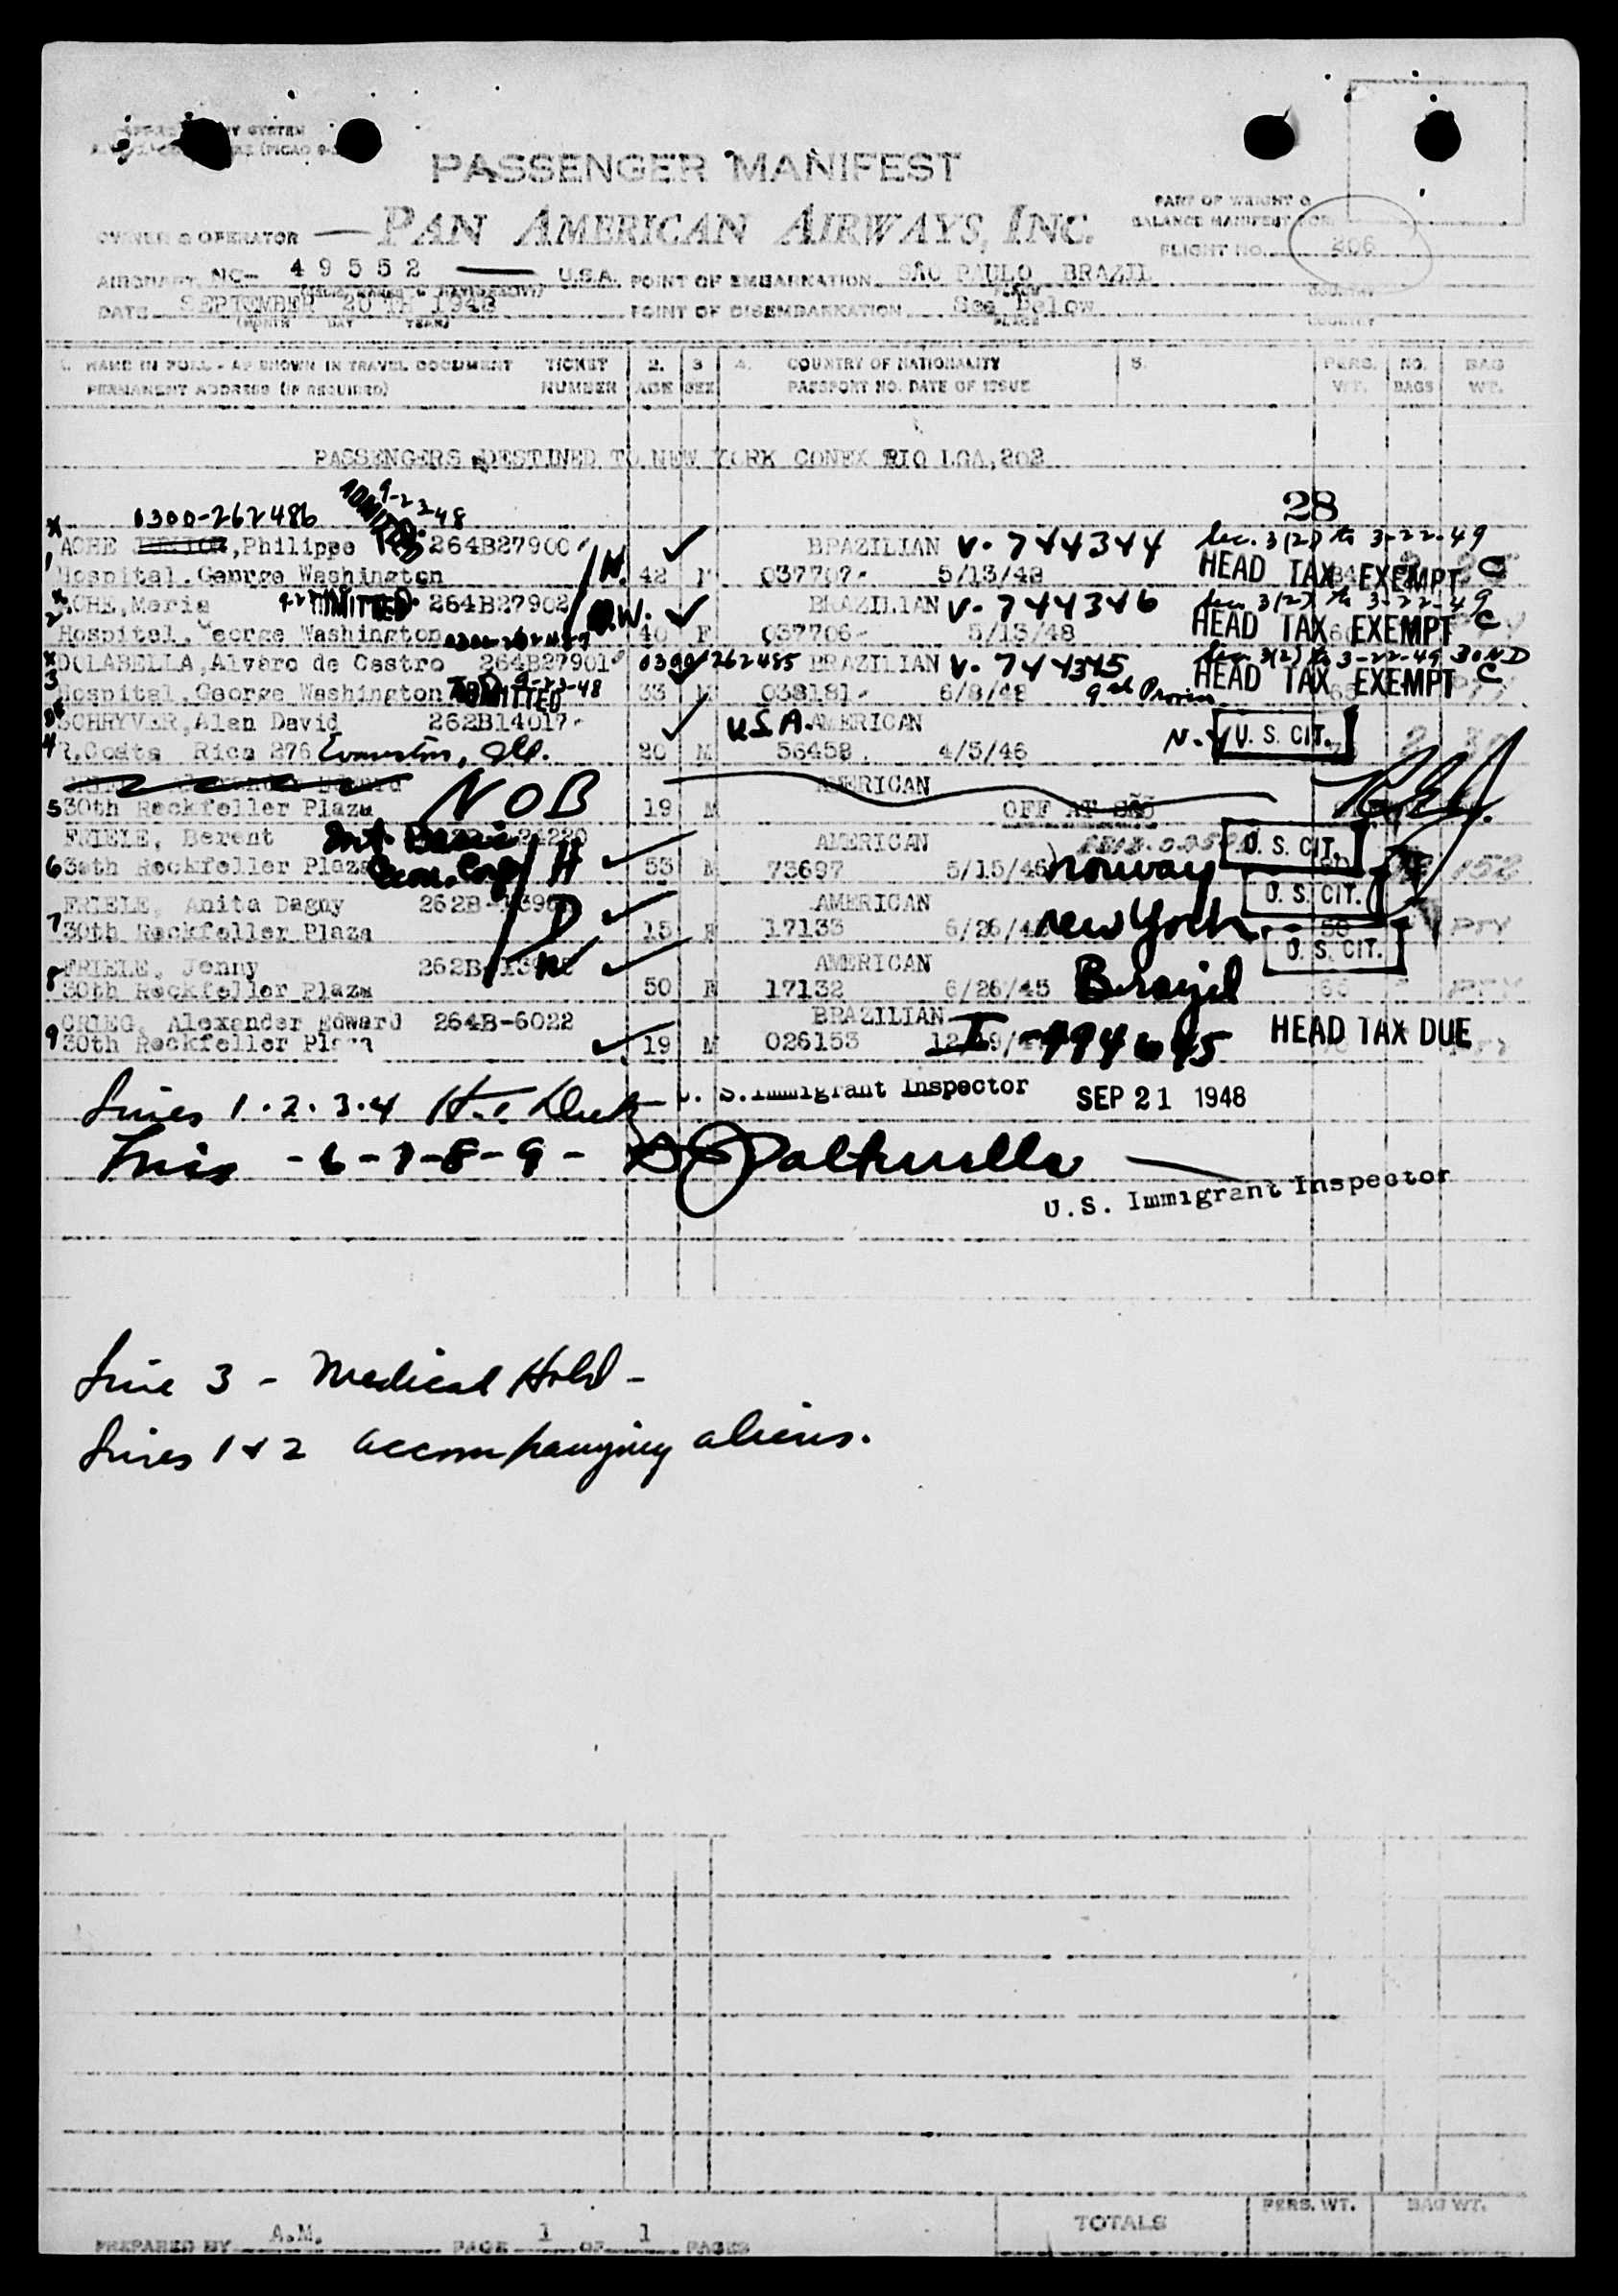 PASSENGER MANIFEST
OWNER & OPERATOR — PAN AMERICAN AIRWAYS, INC.
PART OF WEIGHT &
BALANCE MANIFEST FOR
FLIGHT NO. 206
AIRCRAFT NC- 49552 — U.S.A. POINT OF EMBARKATION SÃO PAULO BRAZIL
DATE SEPTEMBER 20TH 1948 POINT OF DISEMBARKATION See Below
(MONTH DAY YEAR) PLACE COUNTRY
1. NAME IN FULL - AS SHOWN IN TRAVEL DOCUMENT TICKET 2. 3 4. COUNTRY OF NATIONALITY 5. PERS. NO. BAG
PERMANENT ADDRESS (IF REQUIRED) NUMBER AGE SEX PASSPORT NO. DATE OF ISSUE WT. BAGS WT.
PASSENGERS DESTINED TO NEW YORK CONEX RIO LGA,202
28
1300-262486 ADMITTED 9-23-48
1 ACHE JUNIOR,Philippe 264B27900 BRAZILIAN V-744344 Sec. 3(2) to 3-22-49
Hospital,George Washington H. 42 M 037707- 5/13/48 HEAD TAX EXEMPT C
2 ACHE,Maria ADMITTED 264B27902 BRAZILIAN V-744346 Sec 3(2) to 3-22-49
Hospital, George Washington W. 40 F 037706- 5/13/48 HEAD TAX EXEMPT C
3 DOLABELLA,Alvaro de Castro 264B27901 0300/262485 BRAZILIAN V-744345 Sec 3(2) to 3-22-49 BOND
Hospital,George Washington ADMITTED 9-23-48 33 M 038181- 6/8/48 9th Proviso HEAD TAX EXEMPT C
SCHRYVER,Alan David 262B14017- U.S.A. AMERICAN
4 R.Costa Rica 276 Evanston, Ill. 20 M 56458 4/5/46 N.Y. U. S. CIT.
AMERICAN
5 30th Rockfeller Plaza NOB 19 M OFF AT SÃO
FRIELE, Berent Int. Basic AMERICAN
6 30th Rockfeller Plaza Econ. Corp H 53 M 73697 5/15/46 Norway U. S. CIT. 152
FRIELE, Anita Dagny 262B AMERICAN U. S. CIT.
7 30th Rockfeller Plaza D 15 F 17133 6/26/4 New York
FRIELE, Jenny 262B W AMERICAN U. S. CIT.
8 30th Rockfeller Plaza 50 F 17132 6/26/45 Brazil
GRIEG, Alexander Edward 264B-6022 BRAZILIAN
9 30th Rockfeller Plaza 19 M 026153 I-994645 HEAD TAX DUE
Lines 1.2.3.4 U. S. Immigrant Inspector SEP 21 1948
Lines -6-7-8-9-
U.S. Immigrant Inspector
Line 3 - Medical Hold -
Lines 1 & 2 accompanying aliens.
PERS. WT. BAG WT.
TOTALS
PREPARED BY A.M. PAGE 1 OF 1 PAGES